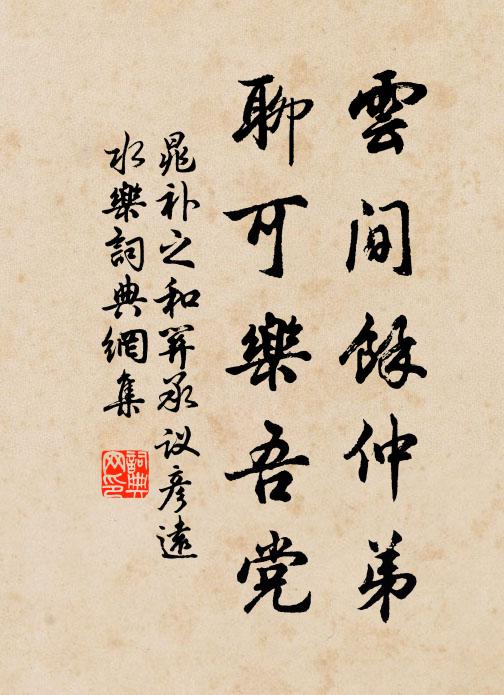 雲間餘仲弟
聊可樂吾党
晁补之和羿承议彦遠
水樂詞典網集
詞典
网印